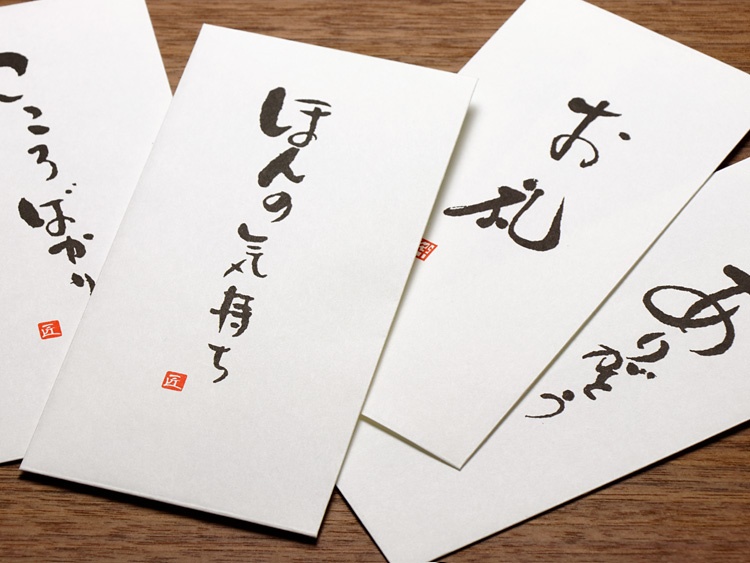 こころばかり
ほんの気持ち
匠
匠
お札
ありがとう